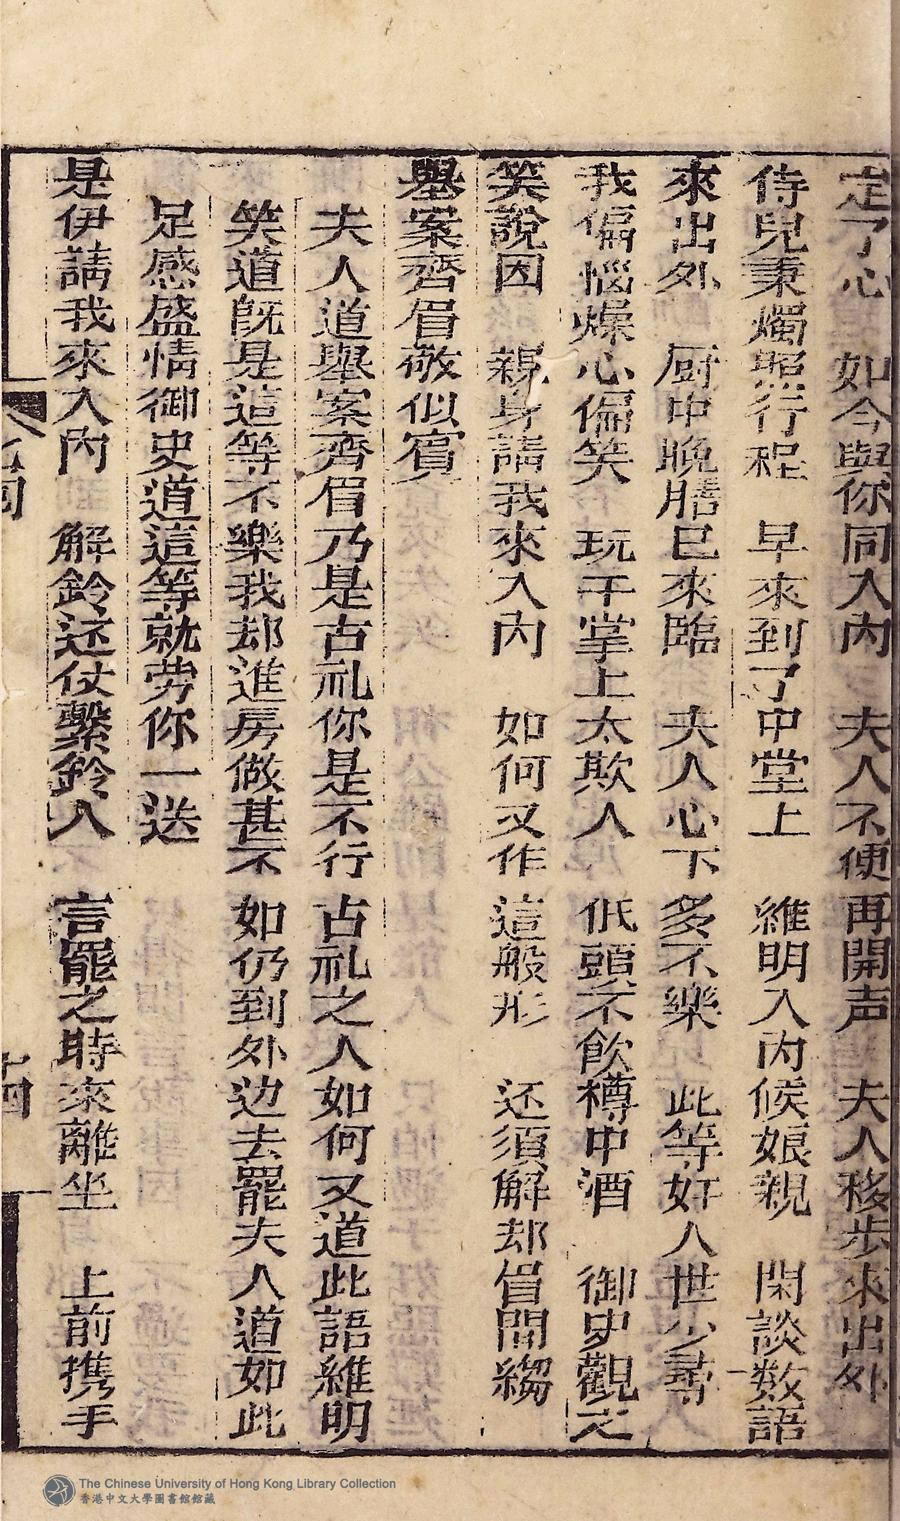 定了心　如今與你同入內　夫人不便再開声　夫人移步來出外
侍兒秉燭照行程　早來到了中堂上　維明入內候娘親　閑談数語
來出外　厨中晚膳已來臨　夫人心下多不樂　此等奸人世少尋
我偏惱燥心偏笑　玩干掌上太欺人　低頭不飲樽中酒　御史觀之
笑說因　親身請我來入內　如何又作這般形　还須解却眉間縐
舉案齊眉敬似賓
夫人道舉案齊眉乃是古礼你是不行古礼之人如何又道此語維明
笑道既是這等不樂我却進房做甚不如仍到外边去罷夫人道如此
足感盛情御史道這等就劳你一送
是伊請我來入內　解鈴还仗繫鈴人　言罷之時來離坐　上前携手
回
十四
The Chinese University of Hong Kong Library Collection
香港中文大學圖書館館藏